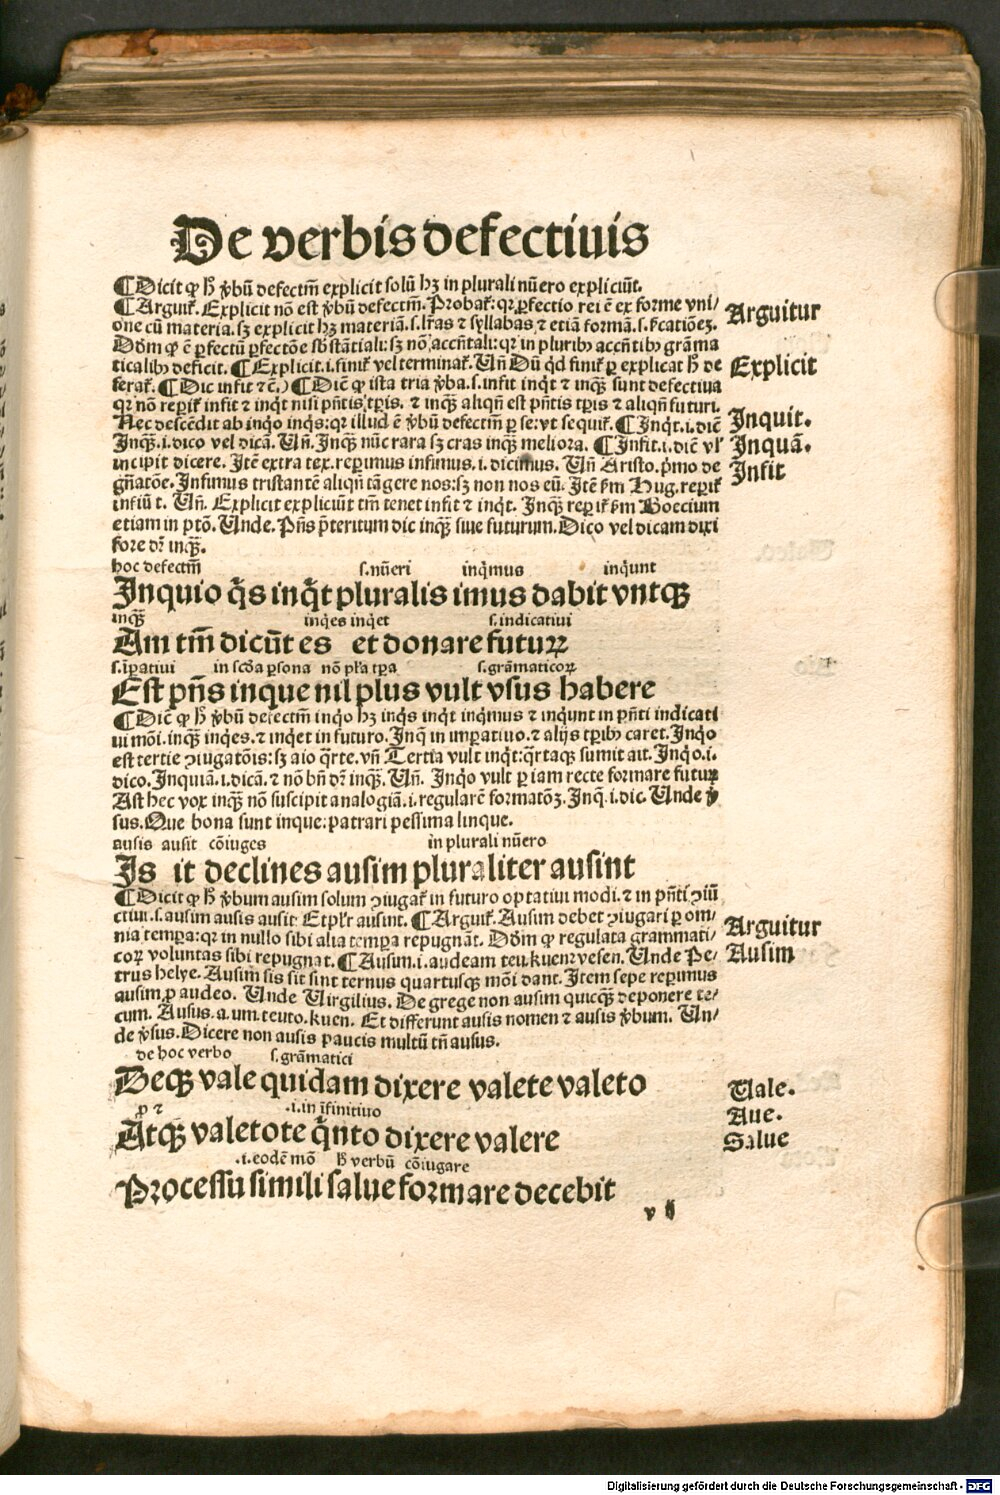 De verbis defectiuis
¶Dicit ꝙ ħ v̄bū defectm̄ explicit solū hꝫ in plurali nūero expliciūt.
¶Arguit̄. Explicit nō est v̄bū defectm̄. Probat̄: qꝛ ꝑfectio rei ē ex forme vni/
one cū materia. sꝫ explicit hꝫ materiā. s. lr̄as ⁊ syllabas ⁊ etiā formā. s. catiōeꝫ.
Dōm ꝙ ē ꝑfectū ꝑfectōe sb̄stātiali: sꝫ nō accn̄tali: qꝛ in pluribꝰ accn̄tibꝰ grāma
ticalibꝰ deficit. ¶Explicit. i. finit̄ vel terminat̄. Un̄ Dū qd̄ finit̄ ꝑ explicat ħ de
ferat̄. ¶Dic infit ⁊ c̄. ¶Dicit ꝙ ista tria v̄ba. s. infit inqt ⁊ inqꝫ sunt defectiua
qꝛ nō reperit̄ infit ⁊ inqt nisi pn̄tis tp̄ris. ⁊ inqꝫ aliqn̄ est pn̄tis tp̄ris ⁊ aliqn̄ futuri.
Nec descēdit ab inqo inqs: qꝛ illud ē v̄bū defectm̄ ꝑ se: vt sequit̄. ¶Inqt. i. dicit
Inqꝫ. i. dico vel dicā. Un̄. Inqꝫ nūc rara sꝫ cras inqꝫ meliora. ¶Infit. i. dicit vl̄
incipit dicere. Itē extra tex. reperimus infimus. i. dicimus. Un̄ Aristo. pͥmo de
gn̄atōe. Infimus tristantē aliqn̄ tāgere nos: sꝫ non nos eū. Itē ẜm Hug. reperit̄
infiūt. Un̄. Explicit expliciūt tm̄ tenet infit ⁊ inqt. Inqꝫ reperit̄ ẜm Boecium
etiam in ptō. Unde. Pn̄s p̄teritum dic inqꝫ siue futurum. Dico vel dicam dixi
fore dr̄ inqꝫ.
hoc defectm̄ s. nūeri inqmus inqunt
Inquio qs inqt pluralis imus dabit vntqꝫ
inqꝫ inqes inqet s. indicatiui
Am tm̄ dicūt es et donare futurꝝ
s. īꝑatiui in scd̄a ꝑsona nō pl̄a tp̄a s. grāmaticoꝝ
Est pn̄s inque nil plus vult vsus habere
¶Dicit ꝙ ħ v̄bū defectm̄ inqo hꝫ inqs inqt inqmus ⁊ inqunt in pn̄ti indicati
ui mōi. inqꝫ inqes. ⁊ inqet in futuro. Inqꝫ in imꝑatiuo. ⁊ alijs tꝑibꝰ caret. Inqo
est tertie ꝯiugatōis: sꝫ aio qrte. vn̄ Tertia vult inqt: qrtaqꝫ sumit ait. Inqo. i.
dico. Inquiā. i. dicā. ⁊ nō bn̄ dr̄ inqꝫ. Un̄. Inqo vult ꝑ iam recte formare futurꝝ
Ast hec vox inqꝫ nō suscipit analogiā. i. regularē formatōꝫ. Inq. i. dic. Unde v̄
sus. Que bona sunt inque: patrari pessima linque.
ausis ausit cōiuges in plurali nūero
Is it declines ausim pluraliter ausint
¶Dicit ꝙ ħ v̄bum ausim solum ꝯiugat̄ in futuro optatiui modi. ⁊ in pn̄ti ꝯiū
ctiui. s. ausim ausis ausit. Et pl̄r ausint. ¶Arguit̄. Ausim debet ꝯiugari ꝑ om/
nia tempora: qꝛ in nullo sibi alia tempora repugnāt. Dōm ꝙ regulata grammati/
coꝝ voluntas sibi repugnat. ¶Ausim. i. audeam teu. kuenꝛ vesen. Unde Pe/
trus helye. Ausim sis sit sint ternus quartusqꝫ mōi dant. Item sepe reperimus
ausim ꝓ audeo. Unde Uirgilius. De grege non ausim quicqꝫ deponere te/
cum. Ausus. a. um. teuto. kuen. Et differunt ausis nomen ⁊ ausis v̄bum. Un/
de v̄sus. Dicere non ausis paucis multū tn̄ ausus.
de hoc verbo s. grāmatici
Deqꝫ vale quidam dixere valete valeto
ꝓ ⁊ .i. in īfinitiuo
Atqꝫ valetote qnto dixere valere
.i. eodē mō ħ verbū cōiugare
Processu simili salue formare decebit
v ij
Arguitur
Explicit
Inquit.
Inquā.
Infit
Arguitur
Ausim
Uale.
Aue.
Salue
Digitalisierung gefördert durch die Deutsche Forschungsgemeinschaft - DFG